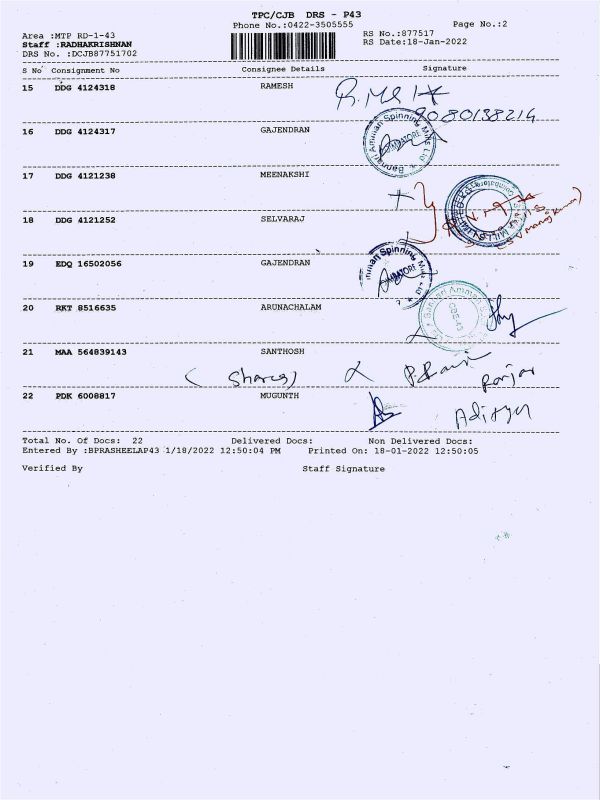 TPC/CJB DRS - P43
Phone No.:0422-3505555
Page No.:2
Area :MTP RD-1-43
RS No.:877517
Staff :RADHAKRISHNAN
RS Date:18-Jan-2022
DRS No. :DCJB87751702
S No Consignment No Consignee Details Signature
15 DDG 4124318 RAMESH
9080138214
16 DDG 4124317 GAJENDRAN
Bannari Amman Spinning Mills Ltd
17 DDG 4121238 MEENAKSHI
18 DDG 4121252 SELVARAJ
19 EDQ 16502056 GAJENDRAN
20 RKT 8516635 ARUNACHALAM
Bannari Amman
CBE-43
21 MAA 564839143 SANTHOSH
(Shares)
22 PDK 6008817 MUGUNTH
Total No. Of Docs: 22 Delivered Docs: Non Delivered Docs:
Entered By :BPRASHEELAP43 1/18/2022 12:50:04 PM Printed On: 18-01-2022 12:50:05
Verified By Staff Signature